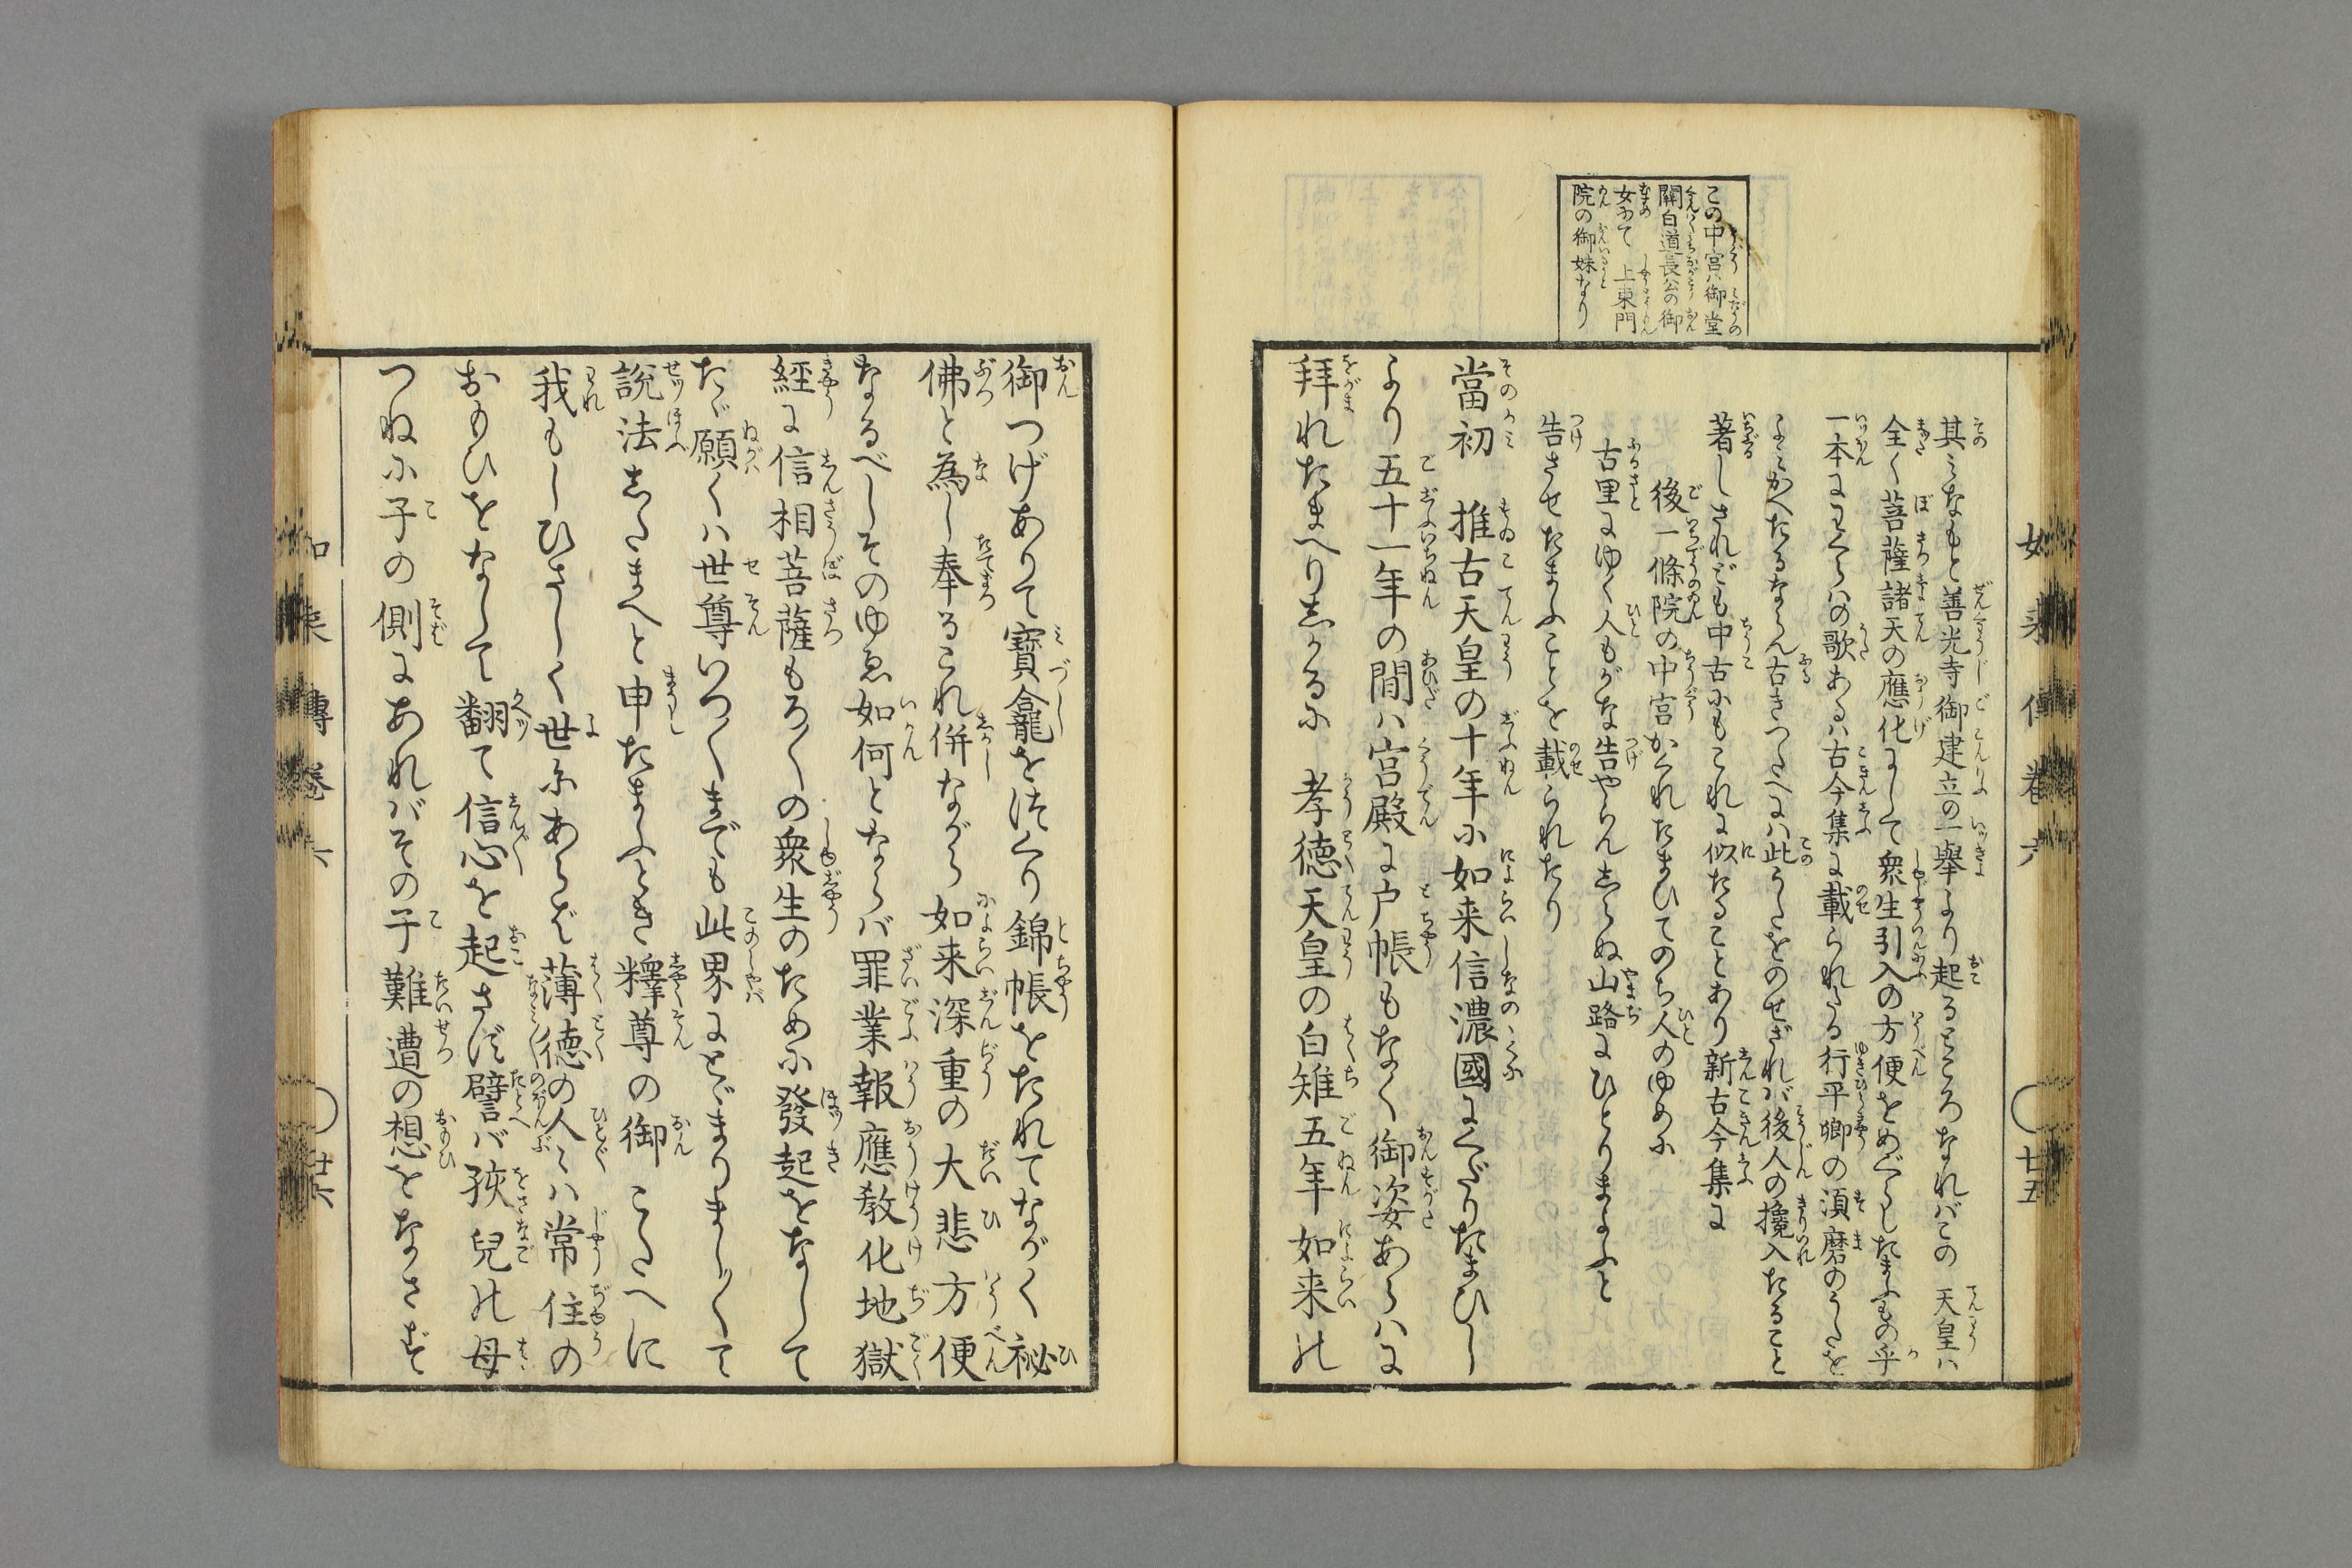 この中宮ハ御堂
關白道長公の御
女にて　上東門
院の御妹なり
其ミなもと善光寺御建立の一擧より起るところなればこの　天皇ハ
全く菩薩諸天の應化にして衆生引入の方便をめぐらしたまふもの乎
一本にわくらハの歌あるハ古今集に載られたる行平卿の須磨のうたを
よミかへたるならん古きつたへにハ此うたをのせざれバ後人の攙入たること
著しされども中古にもこれに似たることあり新古今集に
後一條院の中宮かくれたまひてのち人のゆめに
古里にゆく人もがな告やらんしらぬ山路にひとりまよふと
告させたまふことを載られたり
當初　推古天皇の十年に如来信濃國にくだりたまひし
より五十一年の間ハ宮殿に戸帳もなく御姿あらハに
拜れたまへりしかるに　孝徳天皇の白雉五年如来の
如来傳卷六　廿五
御つげありて寶龕をつくり錦帳をたれてながく祕
佛と為し奉るこれ併ながら如来深重の大悲方便
なるべしそのゆゑ如何とならバ罪業報應教化地獄
經に信相菩薩もろ〳〵の衆生のために發起をなして
たゞ願くハ世尊いつ〳〵までも此界にとゞまりまし〳〵て
說法したまへと申たまふとき釋尊の御こたへに
我もしひさしく世にあらば薄徳の人〻ハ常住の
おもひをなして翻て信心を起さず譬バ孩兒の母
つねに子の側にあれバその子難遭の想をなさず
如来傳卷六　廿六